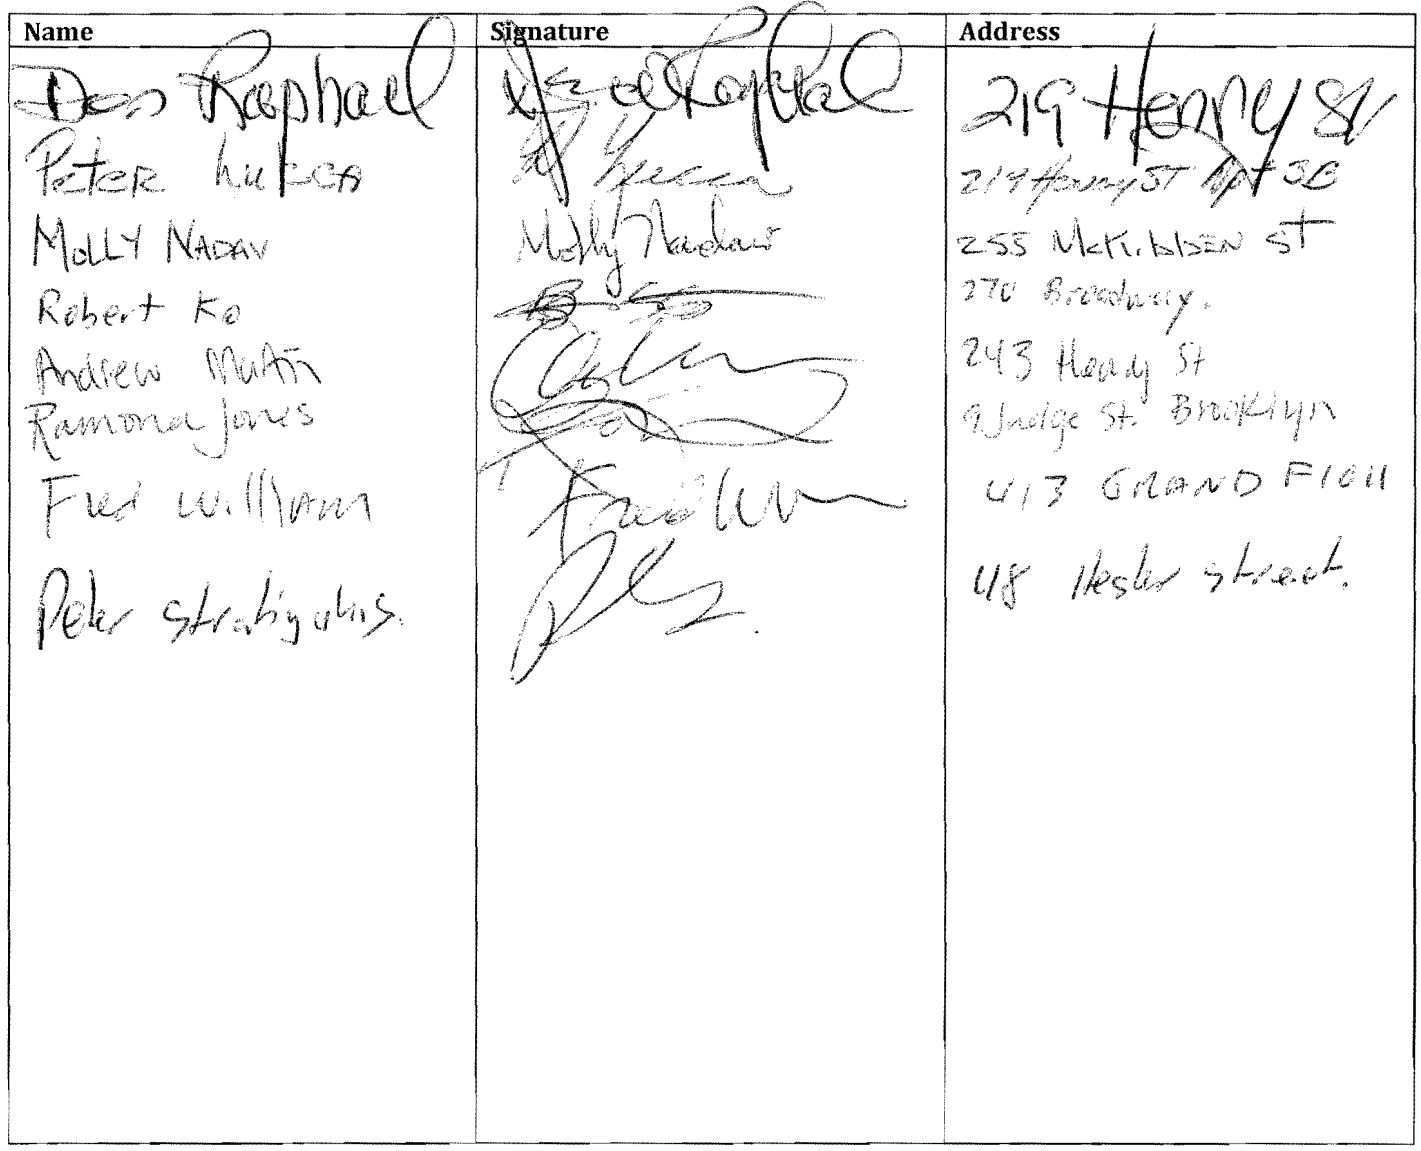 Name Signature Address
Raphael 219 Henry St
Peter Lucca 219 Henry ST Apt 3B
MOLLY NADAV Molly Nadav 255 McKibben St
Robert Ko 270 Broadway.
Andrew Martin 243 Henry St
Ramona Jones 9 Judge St. Brooklyn
Fred William Fred 413 GRAND
Peter 48 Hester street.